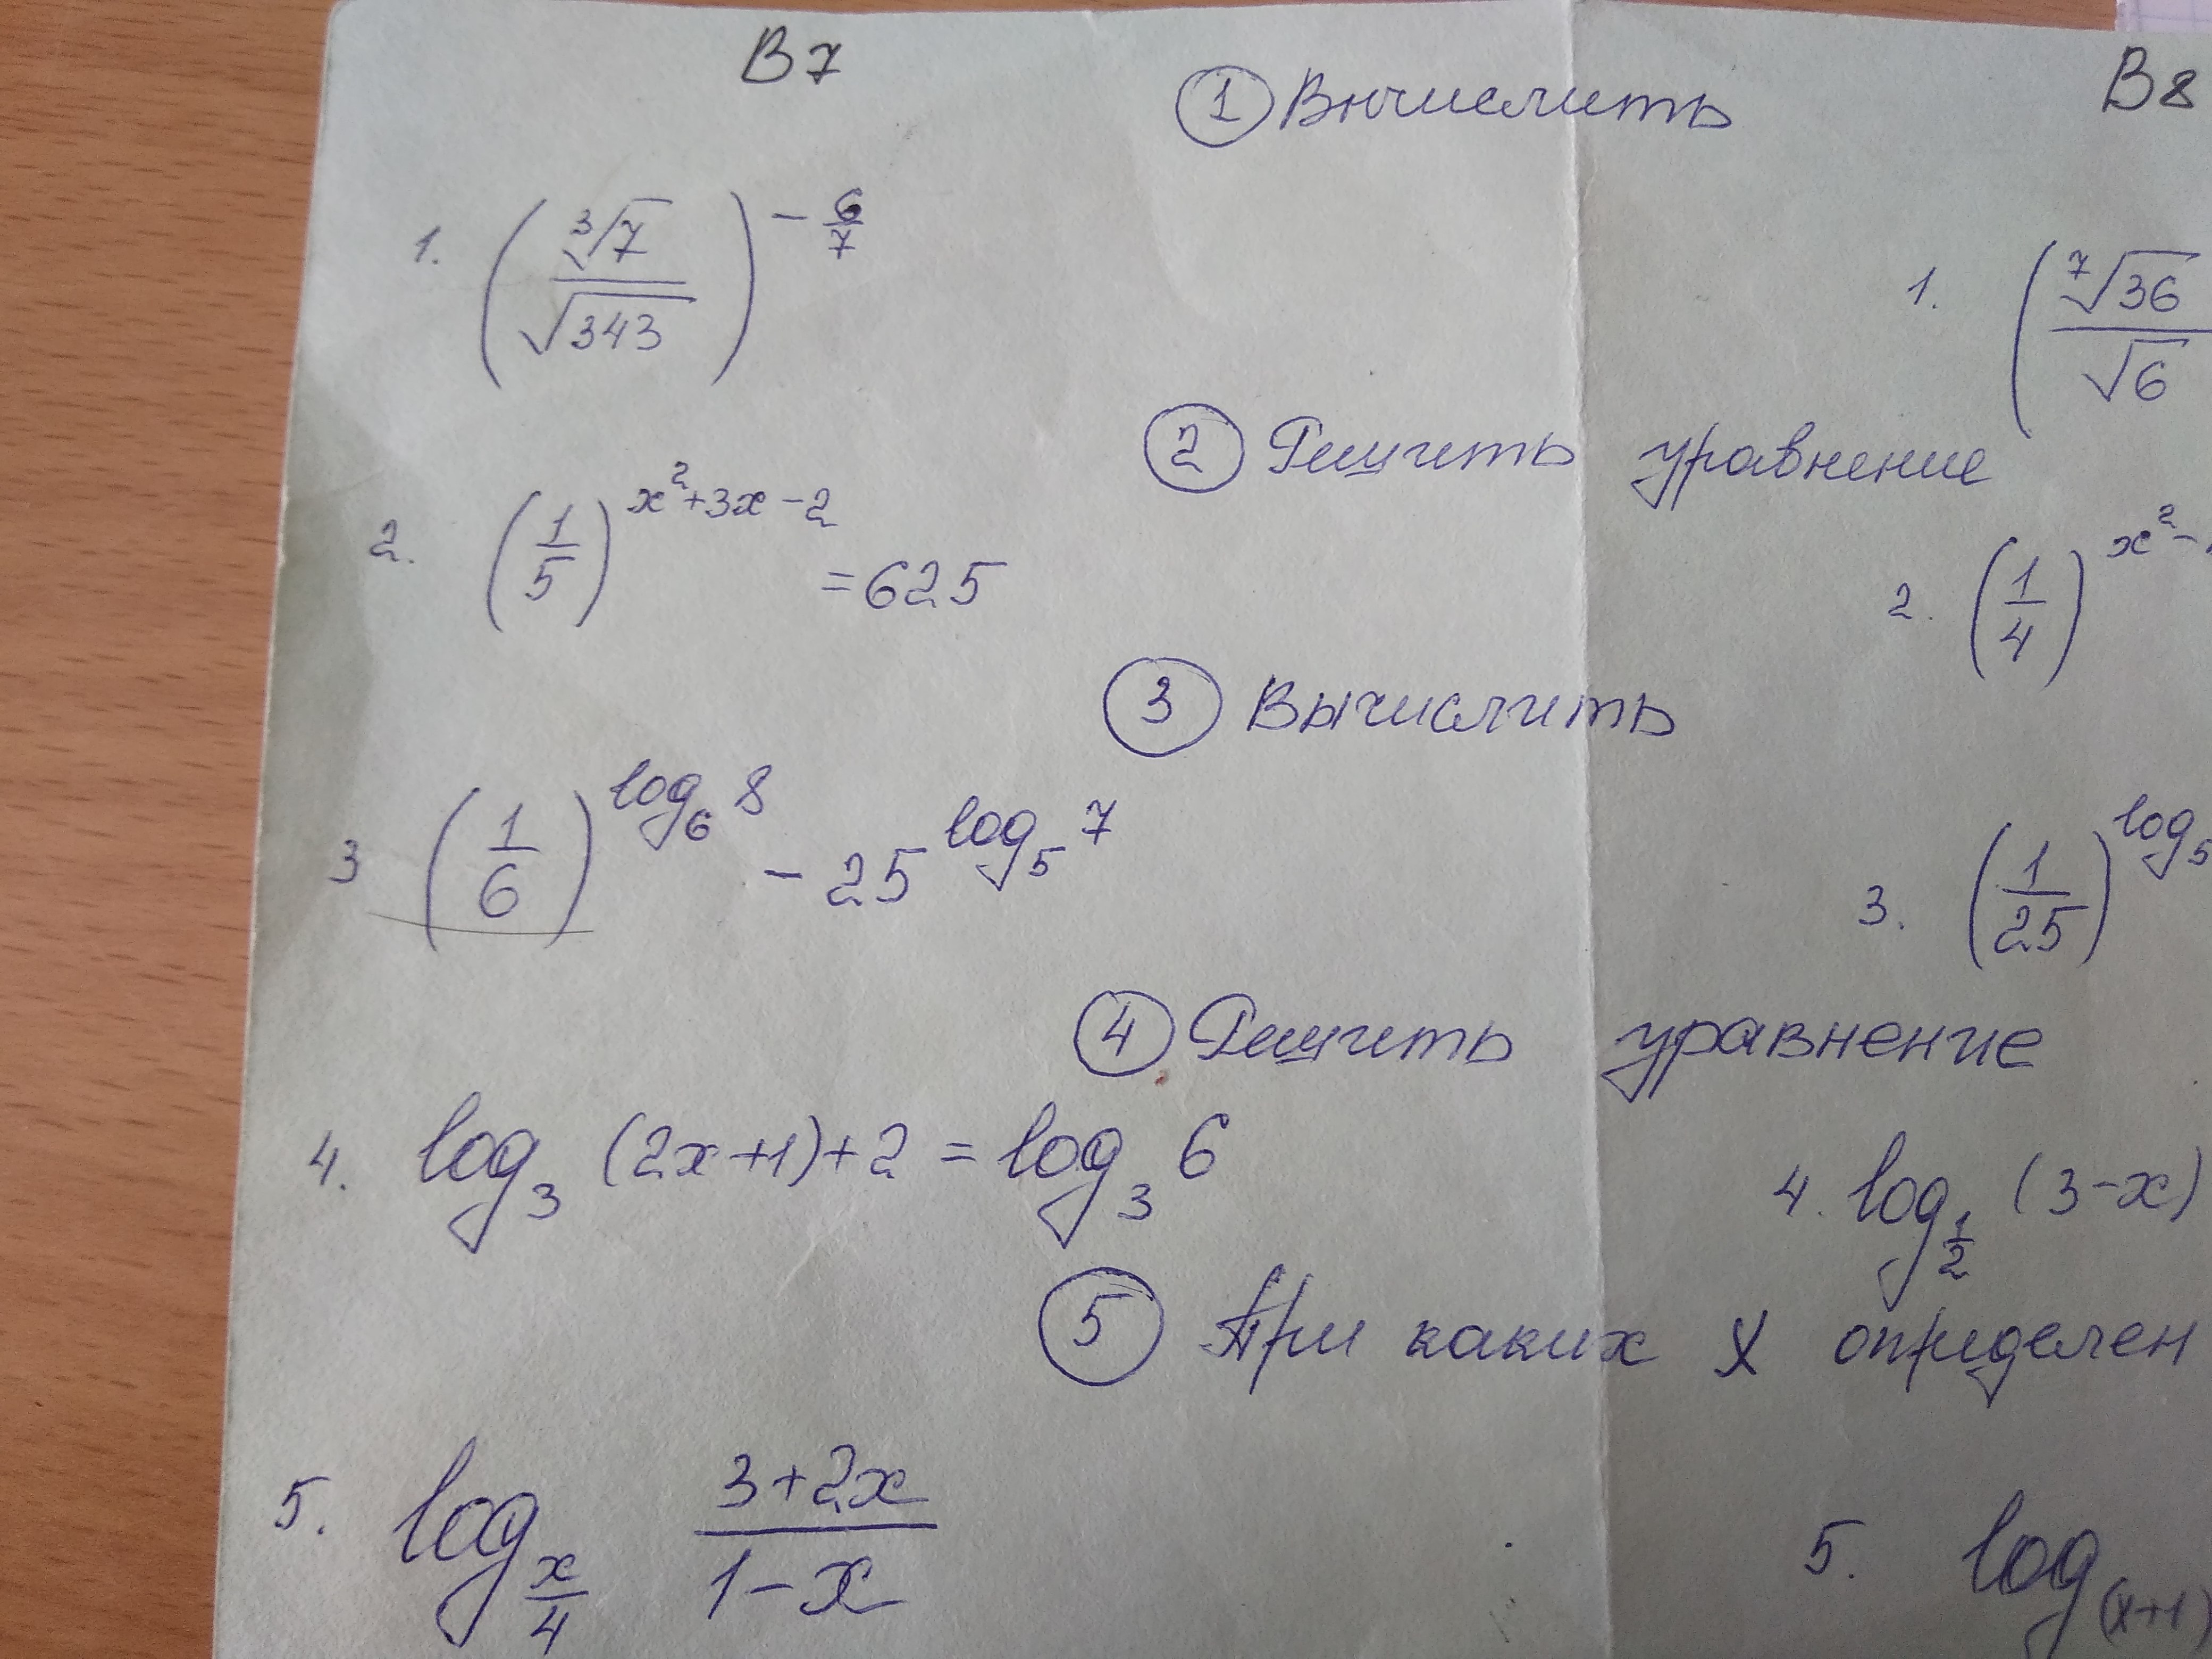 В7
В8
① Вычислить
1. (∛7 / √343)^(-6/7)
1. (⁷√36 / √6
② Решить уравнение
2. (1/5)^(x²+3x-2) = 625
2. (1/4)^(x²-
③ Вычислить
3 (1/6)^(log₆ 8) - 25^(log₅ 7)
3. (1/25)^(log₅
④ Решить уравнение
4. log₃ (2x+1)+2 = log₃ 6
4. log_(1/2) (3-x)
⑤ При каких x определен
5. log_(x/4) (3+2x)/(1-x)
5. log_(x+1)